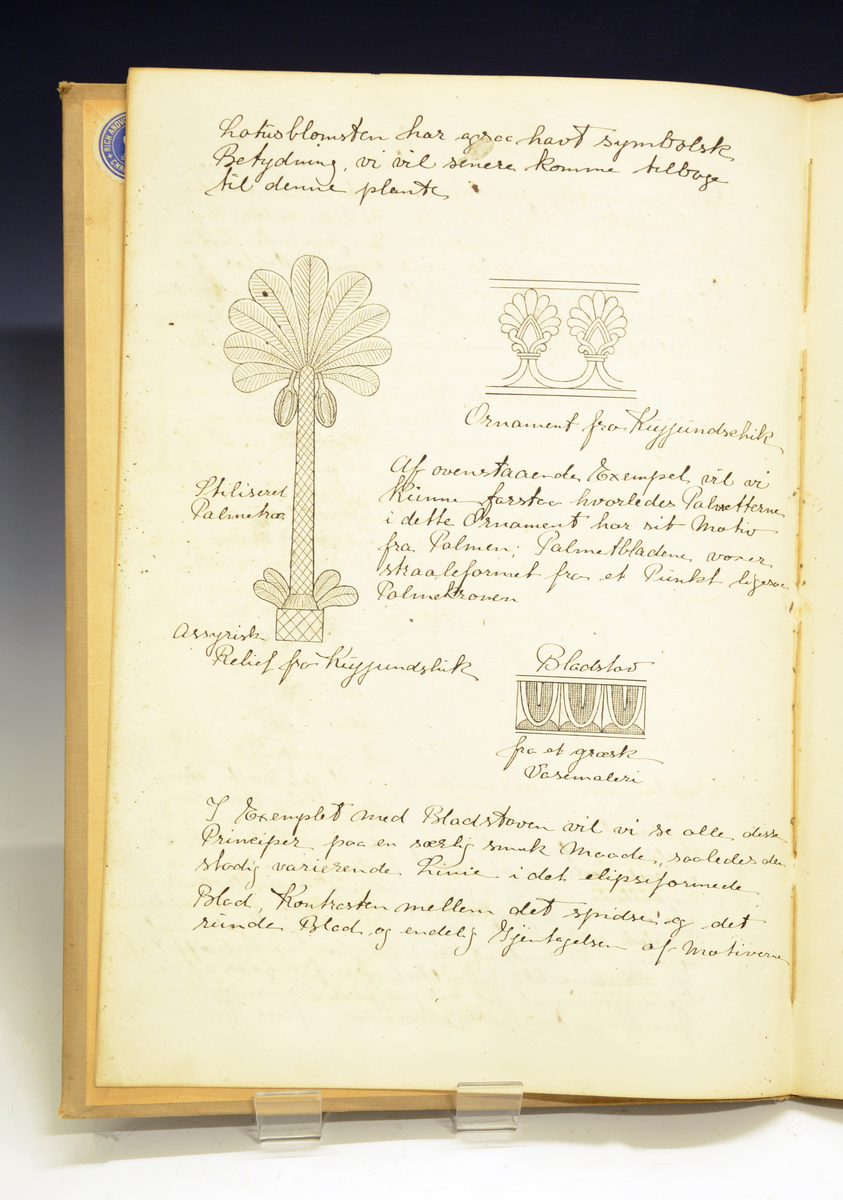 RICH ANDV
CHR
Lotusblomsten har ogsaa havt symbolsk
Betydning, vi vil senere komme tilbage
til denne plante
Ornament fra Kujjundschik
Stiliseret
Palmetræ
Af ovenstaaende Exempel vil vi
kunne forstaa hvorledes Palmetterne
i dette Ornament har sit Motiv
fra Palmen; Palmetbladene voxer
straaleformet fra et Punkt ligesom
Palmekronen
Assyrisk
Relief fra Kujjundshik
Bladstav
fra et græsk
Vasemaleri
I Exemplet med Bladstaven vil vi se alle disse
Principer paa en særlig smuk Maade, saaledes den
stadig varierende Linie i det elipseformede
Blad, Kontrasten mellem det spidse og det
runde Blad og endelig Gjentagelsen af Motiverne